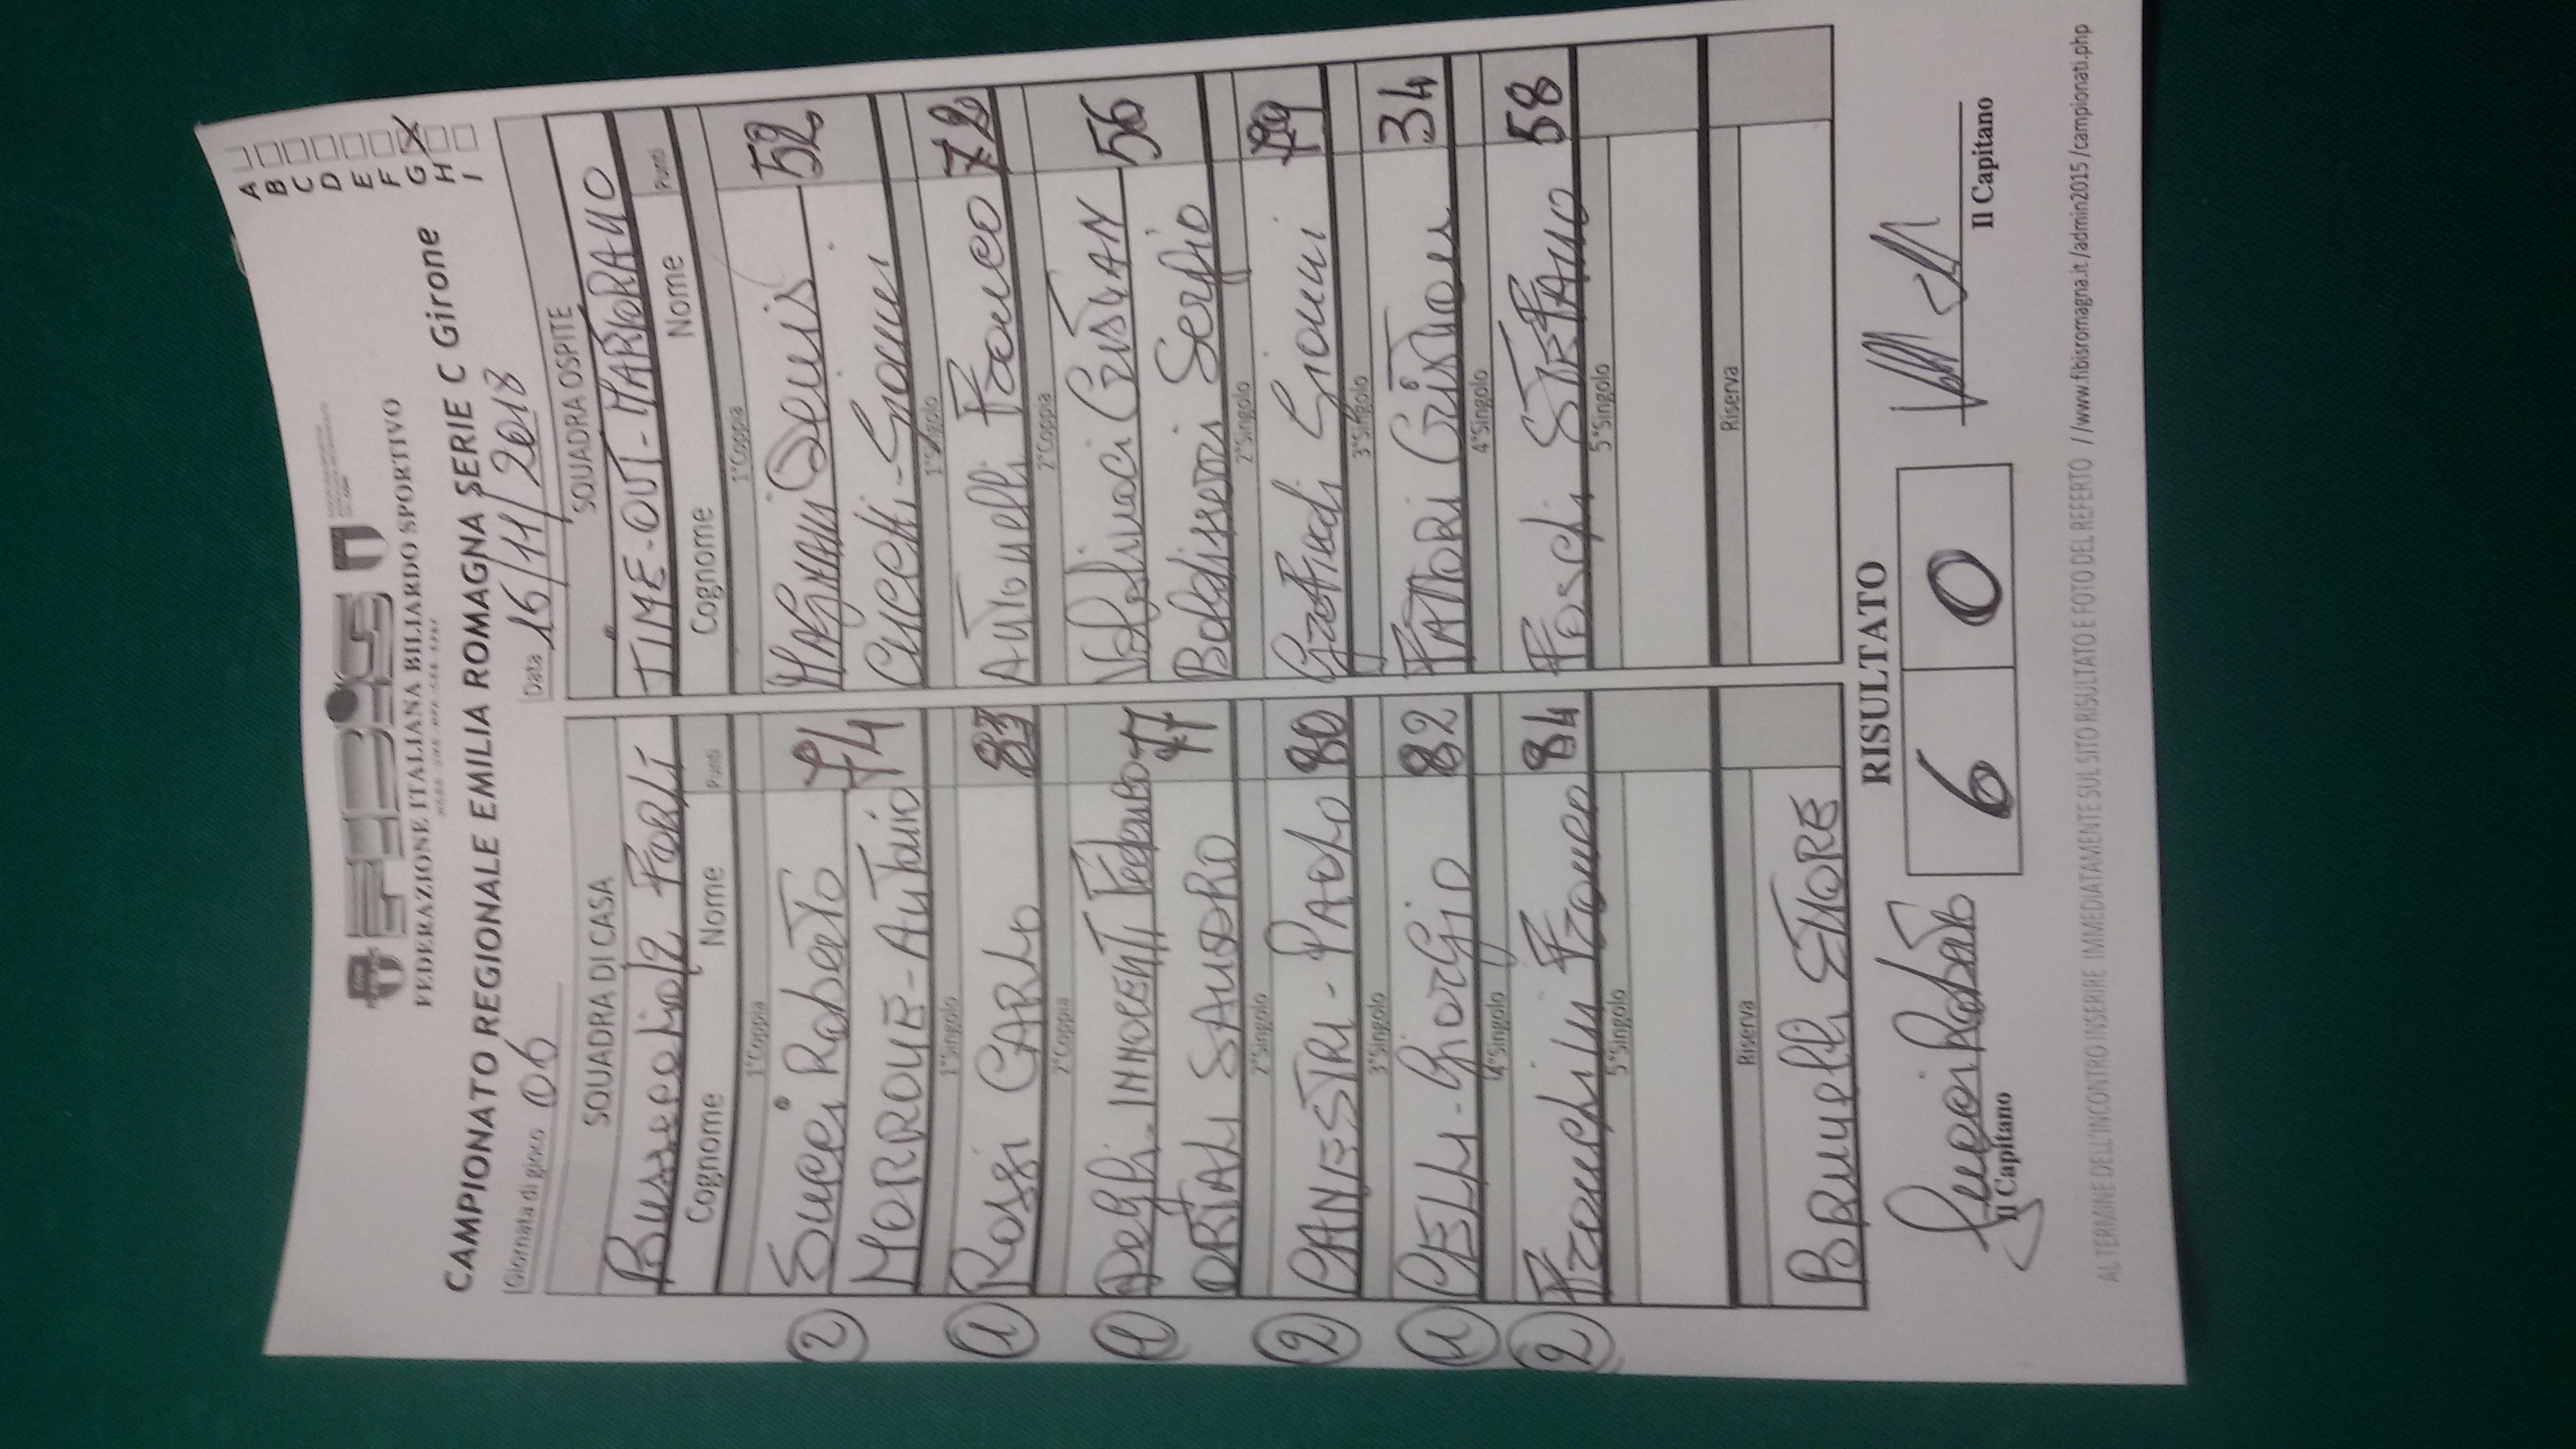 FEDERAZIONE ITALIANA BILIARDO SPORTIVO
CAMPIONATO REGIONALE EMILIA ROMAGNA SERIE C Girone
A
B
C
D
E
F
G X
H
I
Giornata di gioco 06
Data 16/11/2018
SQUADRA DI CASA
Forlì
Cognome Nome Punti
1°Coppia
Succi Roberto 74
MORRONE - Antonio
1°Singolo
Rossi CARLO 83
2°Coppia
Degli - INNOCENTI 77
ORIALI SAURO
2°Singolo
CANESTRI - PAOLO 80
3°Singolo
CELLI - GiorGio 82
4°Singolo
Franchini Franco 84
5°Singolo
Riserva
BRUNELLI ETTORE
SQUADRA OSPITE
TIME-OUT-MARTORANO
Cognome Nome Punti
1°Coppia
MAGNANI Denis 52
Gianni
1°Singolo
Antonelli Franco 72
2°Coppia
CRISTIAN 56
Baldisserri Sergio
2°Singolo
Graffiedi Gianni 79
3°Singolo
FATTORI Cristian 34
4°Singolo
Foschi STEFANO 58
5°Singolo
Riserva
2
1
1
2
1
2
RISULTATO
6 0
Succi Roberto
Il Capitano
Il Capitano
AL TERMINE DELL'INCONTRO INSERIRE IMMEDIATAMENTE SUL SITO RISULTATO E FOTO DEL REFERTO //www.fibisromagna.it/admin2015/campionati.php